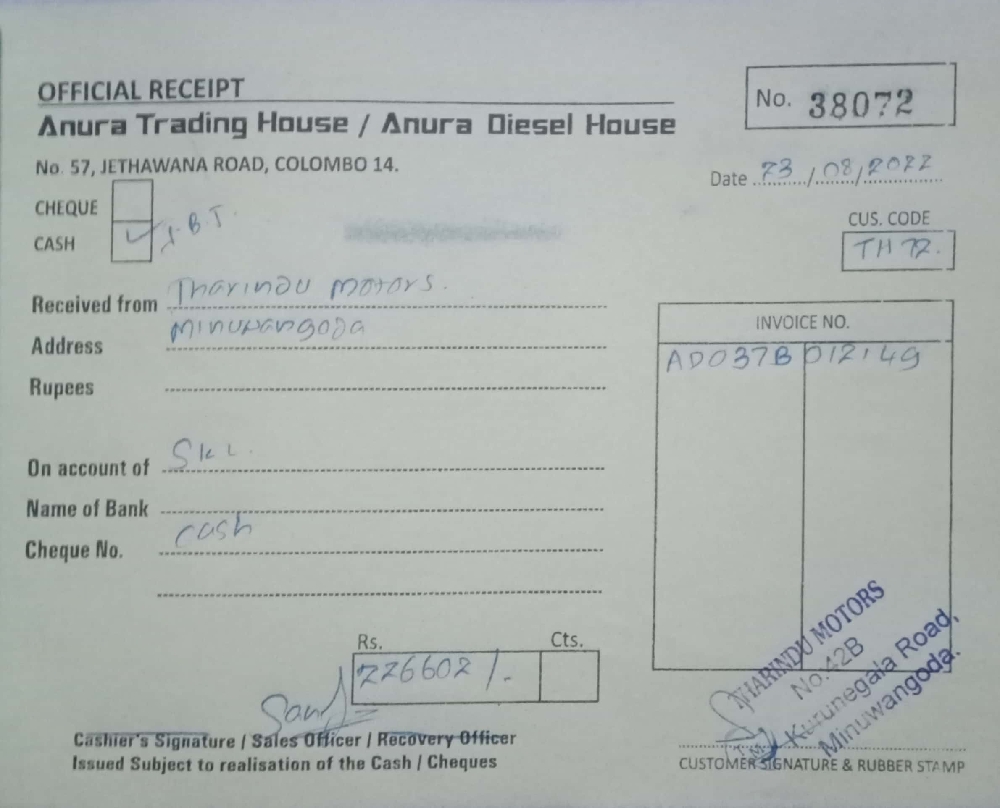 OFFICIAL RECEIPT
No. 38072
Anura Trading House / Anura Diesel House
No. 57, JETHAWANA ROAD, COLOMBO 14.
Date 23/08/2022
CHEQUE
CASH ✓
CUS. CODE
TH 72.
Received from Tharindu Motors.
Address Minuwangoda
Rupees
INVOICE NO.
AD037B 012149
On account of
Name of Bank
Cheque No. cash
Rs. Cts.
226602/-
Cashier's Signature / Sales Officer / Recovery Officer
Issued Subject to realisation of the Cash / Cheques
THARINDU MOTORS
No.42B
Kurunegala Road,
Minuwangoda.
CUSTOMER SIGNATURE & RUBBER STAMP